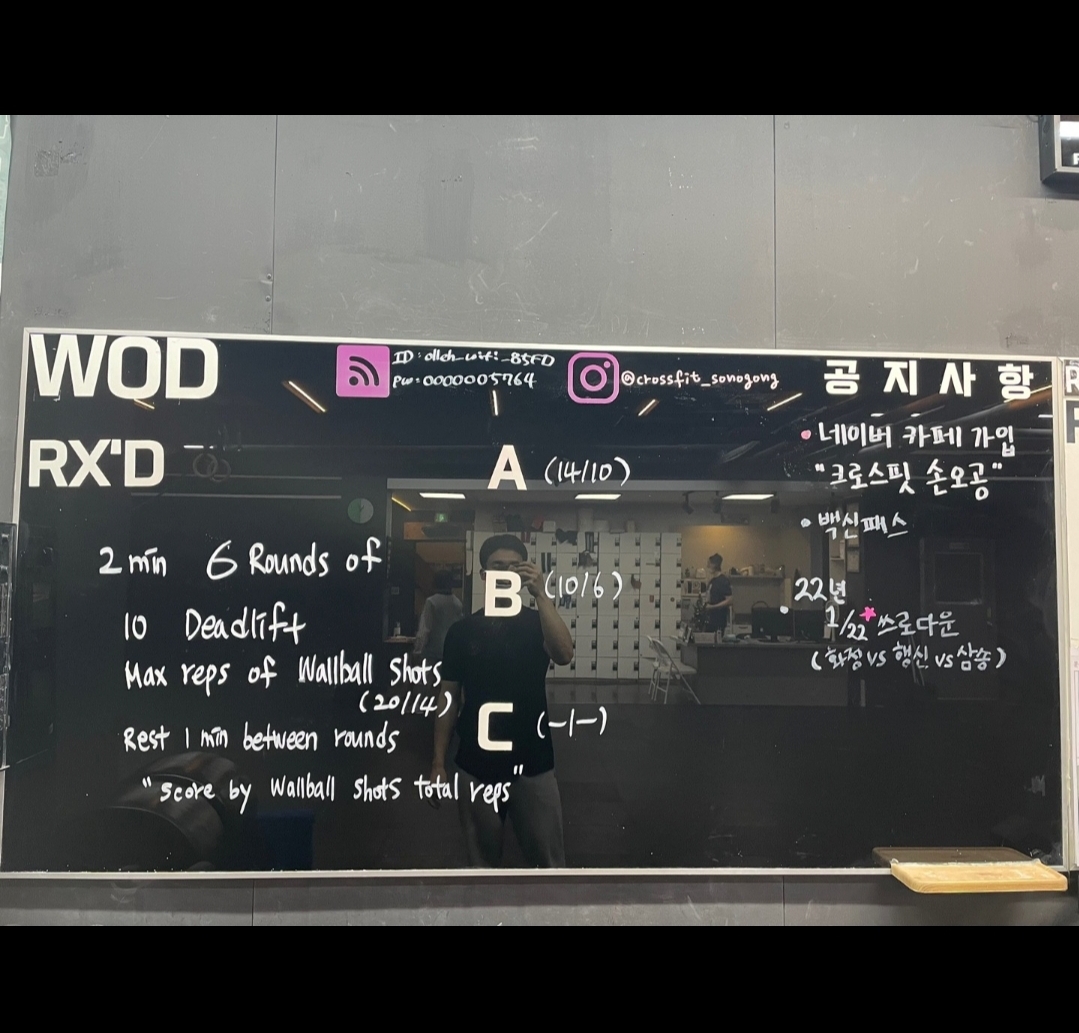 WOD
ID : olleh_wifi_85FD
PW : 0000005764
@crossfit_sonogong
RX'D
2 min 6 Rounds of
10 Deadlift
Max reps of Wallball Shots
(20/14)
Rest 1 min between rounds
"score by Wallball shots total reps"
A (14/10)
B (10/6)
C (-/-)
공지사항
• 네이버 카페 가입
"크로스핏 손오공"
• 백신패스
• 22년
1/22* 쓰로다운
(화정 vs 행신 vs 삼송)